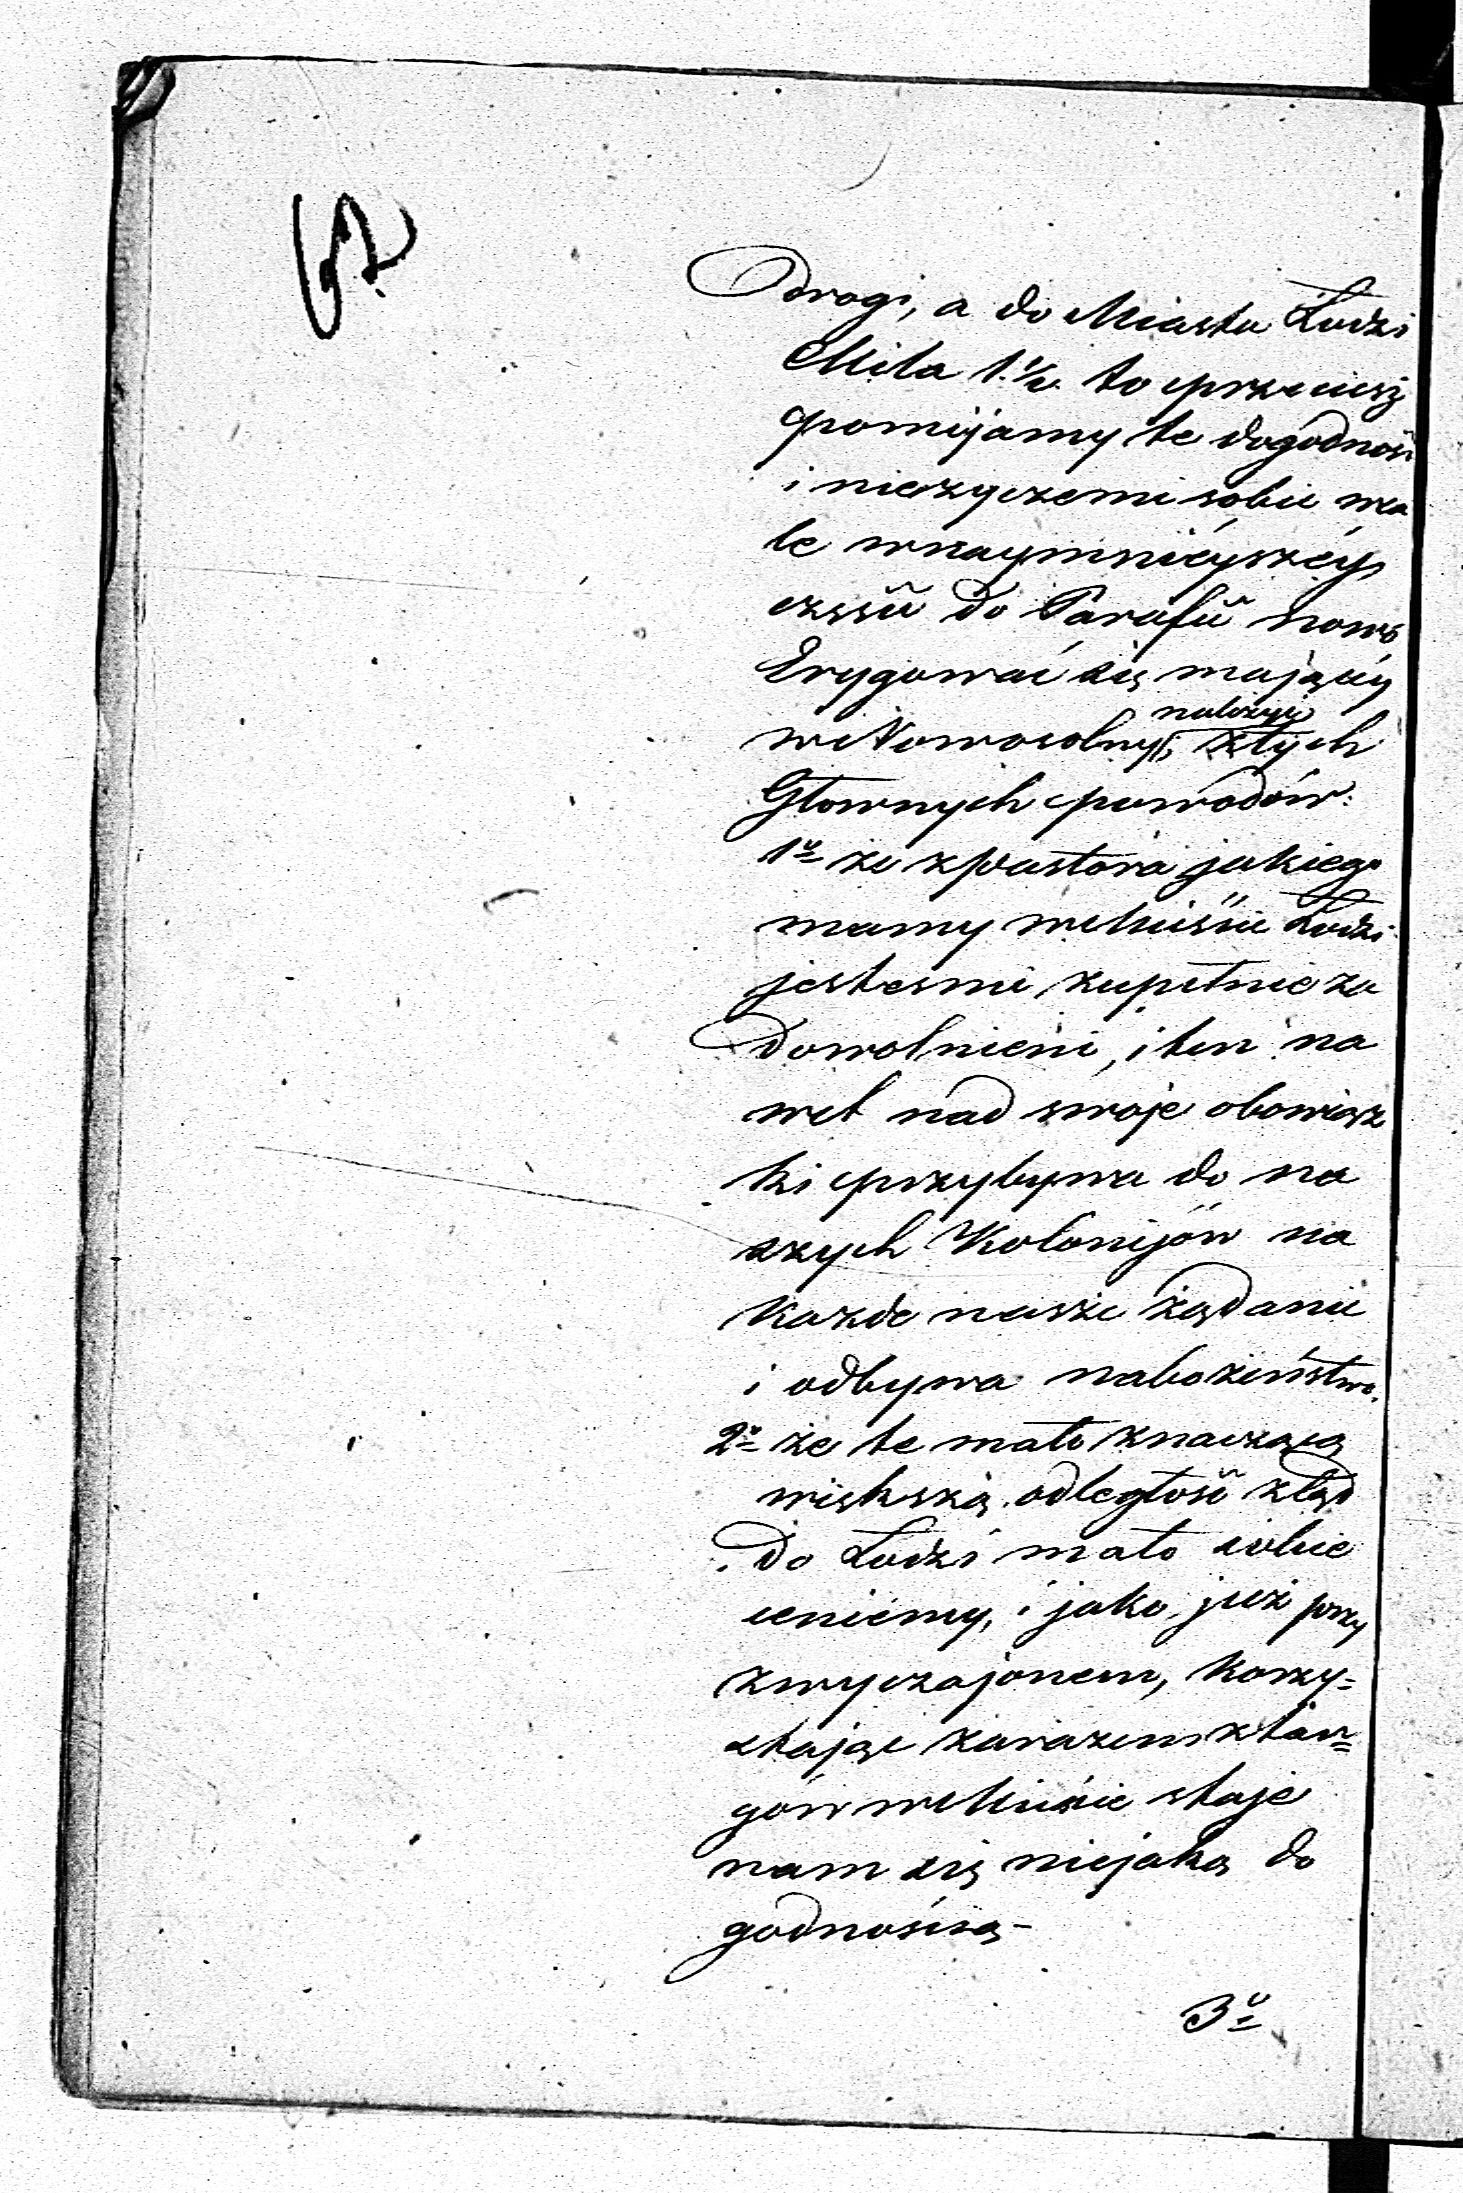 62
drogi, a do Miasta Łodzi
Mila 1 1/2. to przeciesz
pomijamy te dogodność
i nieżyczemi sobie wca
le wnaymnieyszéy
części do Parafii nowo
Erygować się mającéy
w Nowosolny, należyć ztych
Głownych powodów:
1o że zpastora jakiego
mamy w Mieście Łodzi
jestesmi zupełnie za
dowolnieni, i ten na
wet nad swoje obowiąz
ki przybywa do na
szych Kolonijów na
każde nasze żądanie
i odbywa nabożeństwo.
2o że te mało znaczącą
większą odległość ztąd
do Łodzi mało sobie
ceniemy, i jako już przy
zwyczajonem, korzy=
stając zarazem z tar=
gów w Mieście staje
nam się niejaką do
godnością –
3o